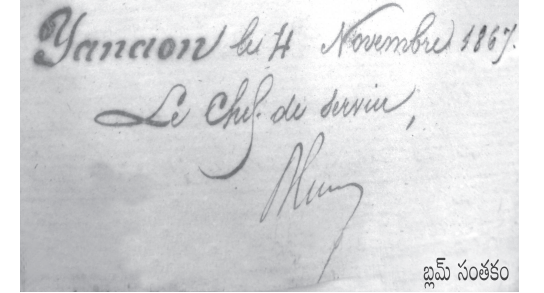 Yanaon le 4 Novembre 1867.
Le Chef de Service,
బ్లమ్ సంతకం